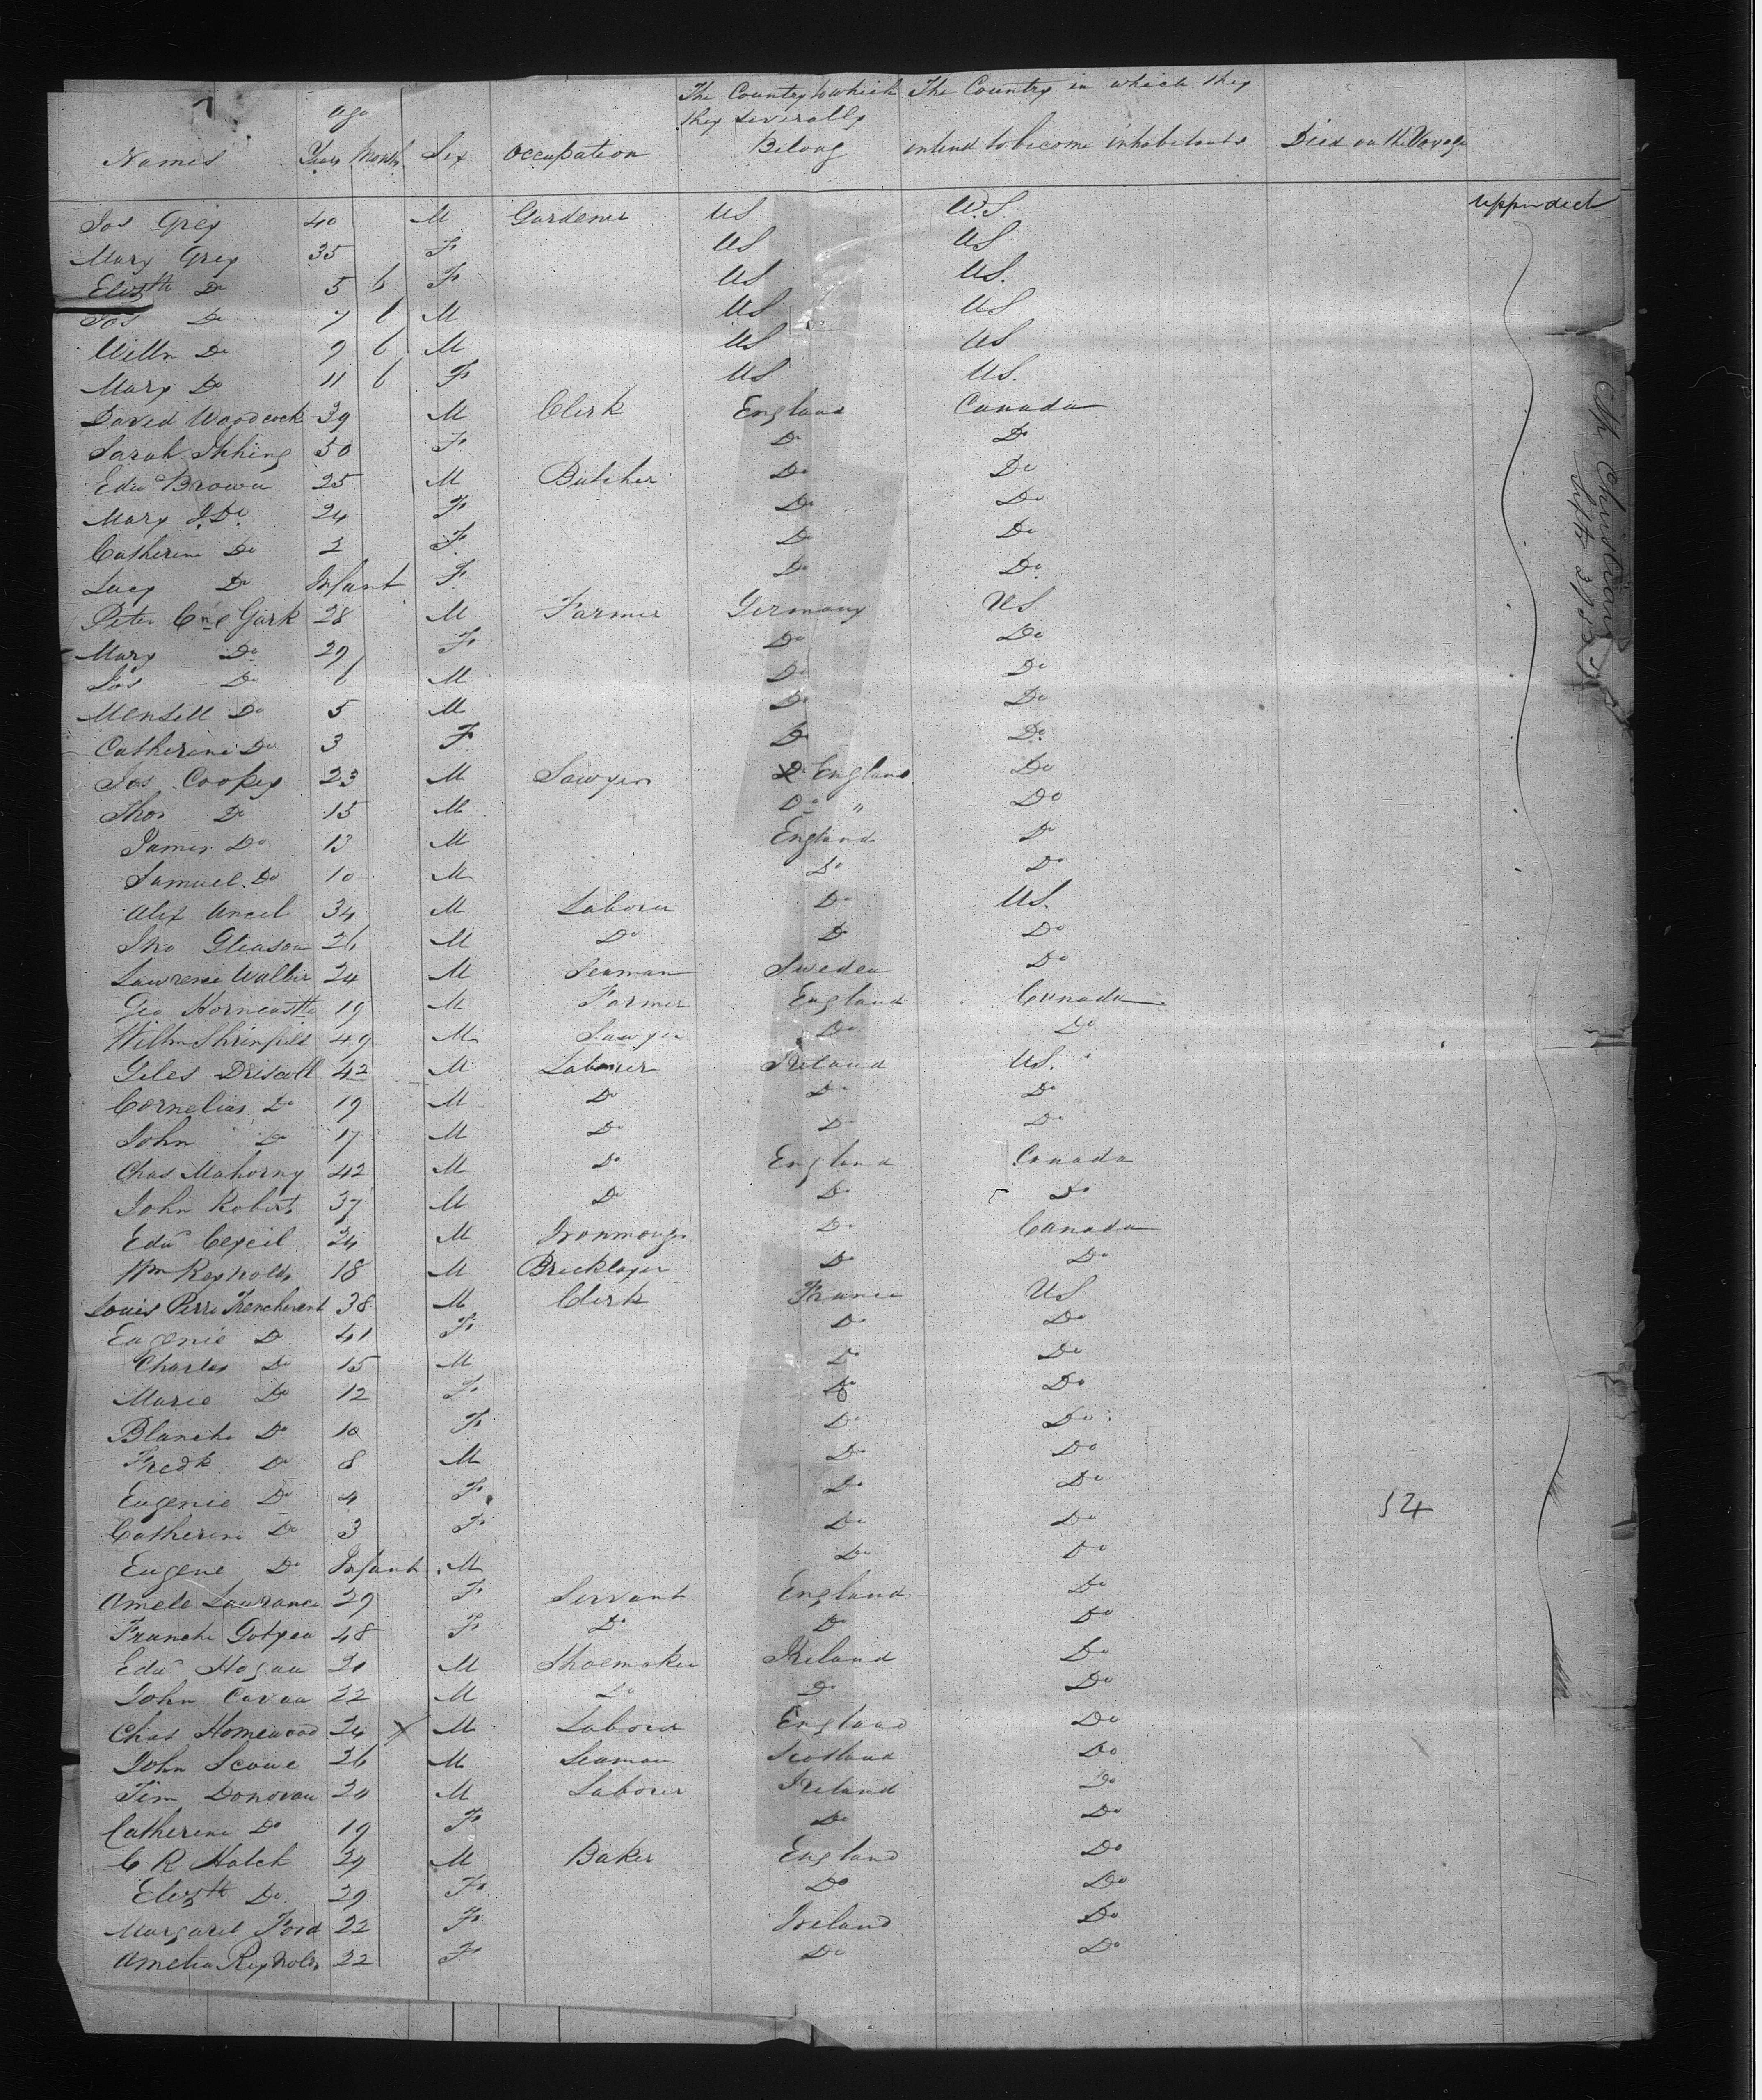 Age
The Country to which The Country in which they
they severally
Names Years Months Sex Occupation Belong intend to become inhabitants Died on the Voyage
Jos Grey 40 M Gardener US U.S. Upperdeck
Mary Grey 35 F US US
Elizth Do 5 6 F US US.
Jos Do 7 6 M US US
Willm Do 9 6 M US US
Mary Do 11 6 F US US.
David Woodcock 39 M Clerk England Canada
Sarah 30 F Do Do
Edwd Brown 25 M Butcher Do Do
Mary J. Do 24 F Do Do
Catherine Do 2 F Do Do
Lucy Do Infant F Do Do
Peter Gark 28 M Farmer Germany US
Mary Do 29 F Do Do
Jos Do 6 M Do Do
Mensell Do 5 M Do Do
Catherine Do 3 F Do Do
Jos Coopey 23 M Sawyer England Do
Thos Do 15 M Do " Do
James Do 13 M England Do
Samuel Do 10 M Do Do
Alex Ancel 34 M Laborer Do US.
Jno Gleason 26 M Do Do Do
Lawrence Waller 24 M Seaman Sweden Do
Geo Horncastle 19 M Farmer England Canada
Willm 49 M Sawyer Do Do
Giles Driscoll 42 M Laborer Ireland US.
Cornelius Do 19 M Do Do Do
John Do 17 M Do Do Do
Chas Mahorny 42 M Do England Canada
John Roberts 37 M Do Do Do
Edwd Cecil 24 M Ironmonger Do Canada
Wm Reynolds 18 M Bricklayer Do Do
Louis Perre Trencherent 38 M Clerk France US
Eugenie Do 41 F Do Do
Charles Do 15 M Do Do
Marie Do 12 F Do Do
Blanche Do 10 F Do Do
Fredk Do 8 M Do Do
Eugenie Do 4 F Do Do 54
Catherine Do 3 F Do Do
Eugene Do Infant M Do Do
Amele Lawrance 29 F Servant England Do
48 F Do Do Do
Edwd Hogan 20 M Shoemaker Ireland Do
John Cavan 22 M Do Do Do
Chas Homewood 24 X M Laborer England Do
John Scowe 26 M Seaman Scotland Do
Tim Donovan 20 M Laborer Ireland Do
Catherine Do 19 F Do Do
C R Hatch 29 M Baker England Do
Elizth Do 29 F Do Do
Margaret Ford 22 F Ireland Do
Amelia Reynolds 22 F Do Do
Christiana